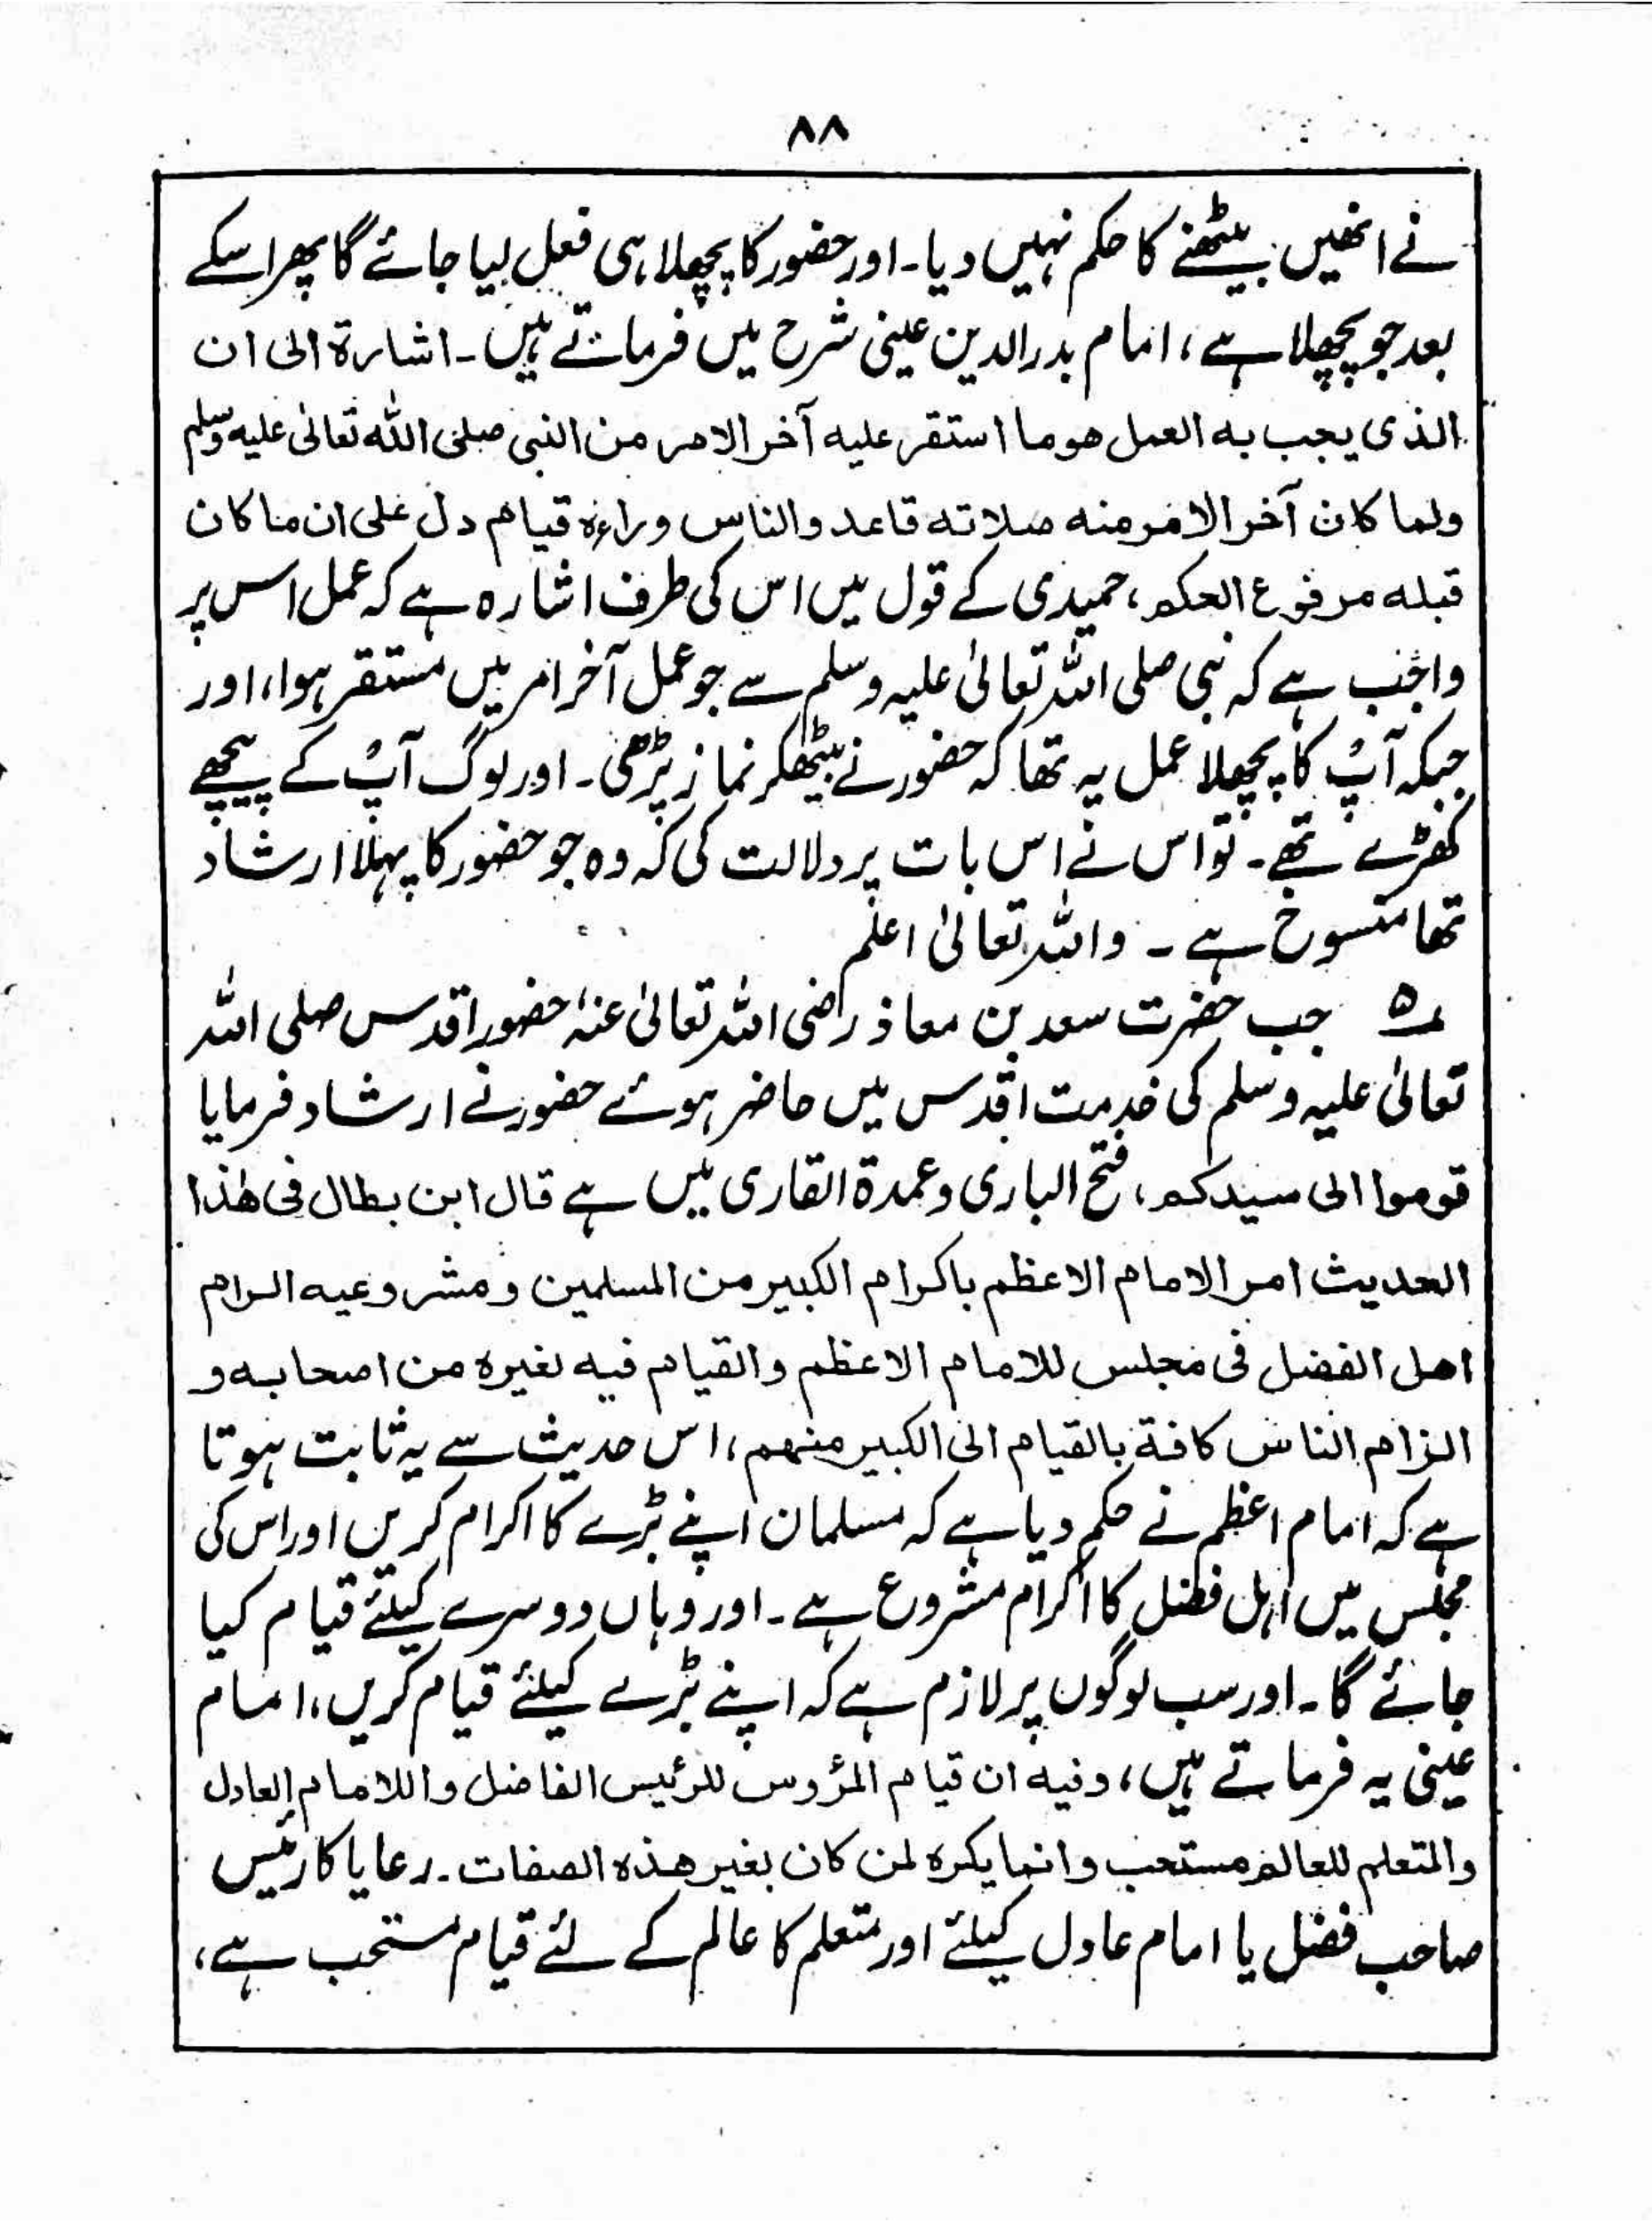 ۸۸
نے انھیں بیٹھنے کا حکم نہیں دیا۔ اور حضور کا پچھلا ہی فعل لیا جائے گا پھر اسکے
بعد جو پچھلا ہے، امام بدرالدین عینی شرح میں فرماتے ہیں۔ اشارۃ الی ان
الذی یجب بہ العمل ھو ما استقر علیہ آخر الامر من النبی صلی اللہ تعالیٰ علیہ وسلم
ولما کان آخر الامر منہ صلاتہ قاعد والناس وراءہ قیام دل علی ان ما کان
قبلہ مرفوع الحکم، حمیدی کے قول میں اس کی طرف اشارہ ہے کہ عمل اس پر
واجب ہے کہ نبی صلی اللہ تعالیٰ علیہ وسلم سے جو عمل آخر امر میں مستقر ہوا، اور
جبکہ آپؐ کا پچھلا عمل یہ تھا کہ حضور نے بیٹھکر نماز پڑھی۔ اور لوگ آپؐ کے پیچھے
کھڑے تھے۔ تو اس نے اس بات پر دلالت کی کہ وہ جو حضور کا پہلا ارشاد
تھا منسوخ ہے ۔ واللہ تعالیٰ اعلم
۵ جب حضرت سعد بن معاذ راضی اللہ تعالیٰ عنہٗ حضور اقدس صلی اللہ
تعالیٰ علیہ وسلم کی خدمت اقدس میں حاضر ہوئے حضور نے ارشاد فرمایا
قوموا الی سیدکم، فتح الباری وعمدۃ القاری میں ہے قال ابن بطال فی ھٰذا
الحدیث امر الامام الاعظم باکرام الکبیر من المسلمین و مشروعیہ الرام
اھل الفضل فی مجلس للامام الاعظم والقیام فیہ لغیرہ من اصحابہ و
الزام الناس کافۃ بالقیام الی الکبیر منھم، اس حدیث سے یہ ثابت ہوتا
ہے کہ امام اعظم نے حکم دیا ہے کہ مسلمان اپنے بڑے کا اکرام کریں اور اس کی
مجلس میں اہل فضل کا اکرام مشروع ہے ۔ اور وہاں دوسرے کیلئے قیام کیا
جائے گا ۔ اور سب لوگوں پر لازم ہے کہ اپنے بڑے کیلئے قیام کریں، امام
عینی یہ فرماتے ہیں، وفیہ ان قیام المرؤوس للرئیس الفاضل واللامام العادل
والمتعلم للعالم مستحب وانما یکرہ لمن کان بغیر ھذہ الصفات ۔ رعایا کا رئیس
صاحب فضل یا امام عادل کیلئے اور متعلم کا عالم کے لئے قیام مستحب ہے،